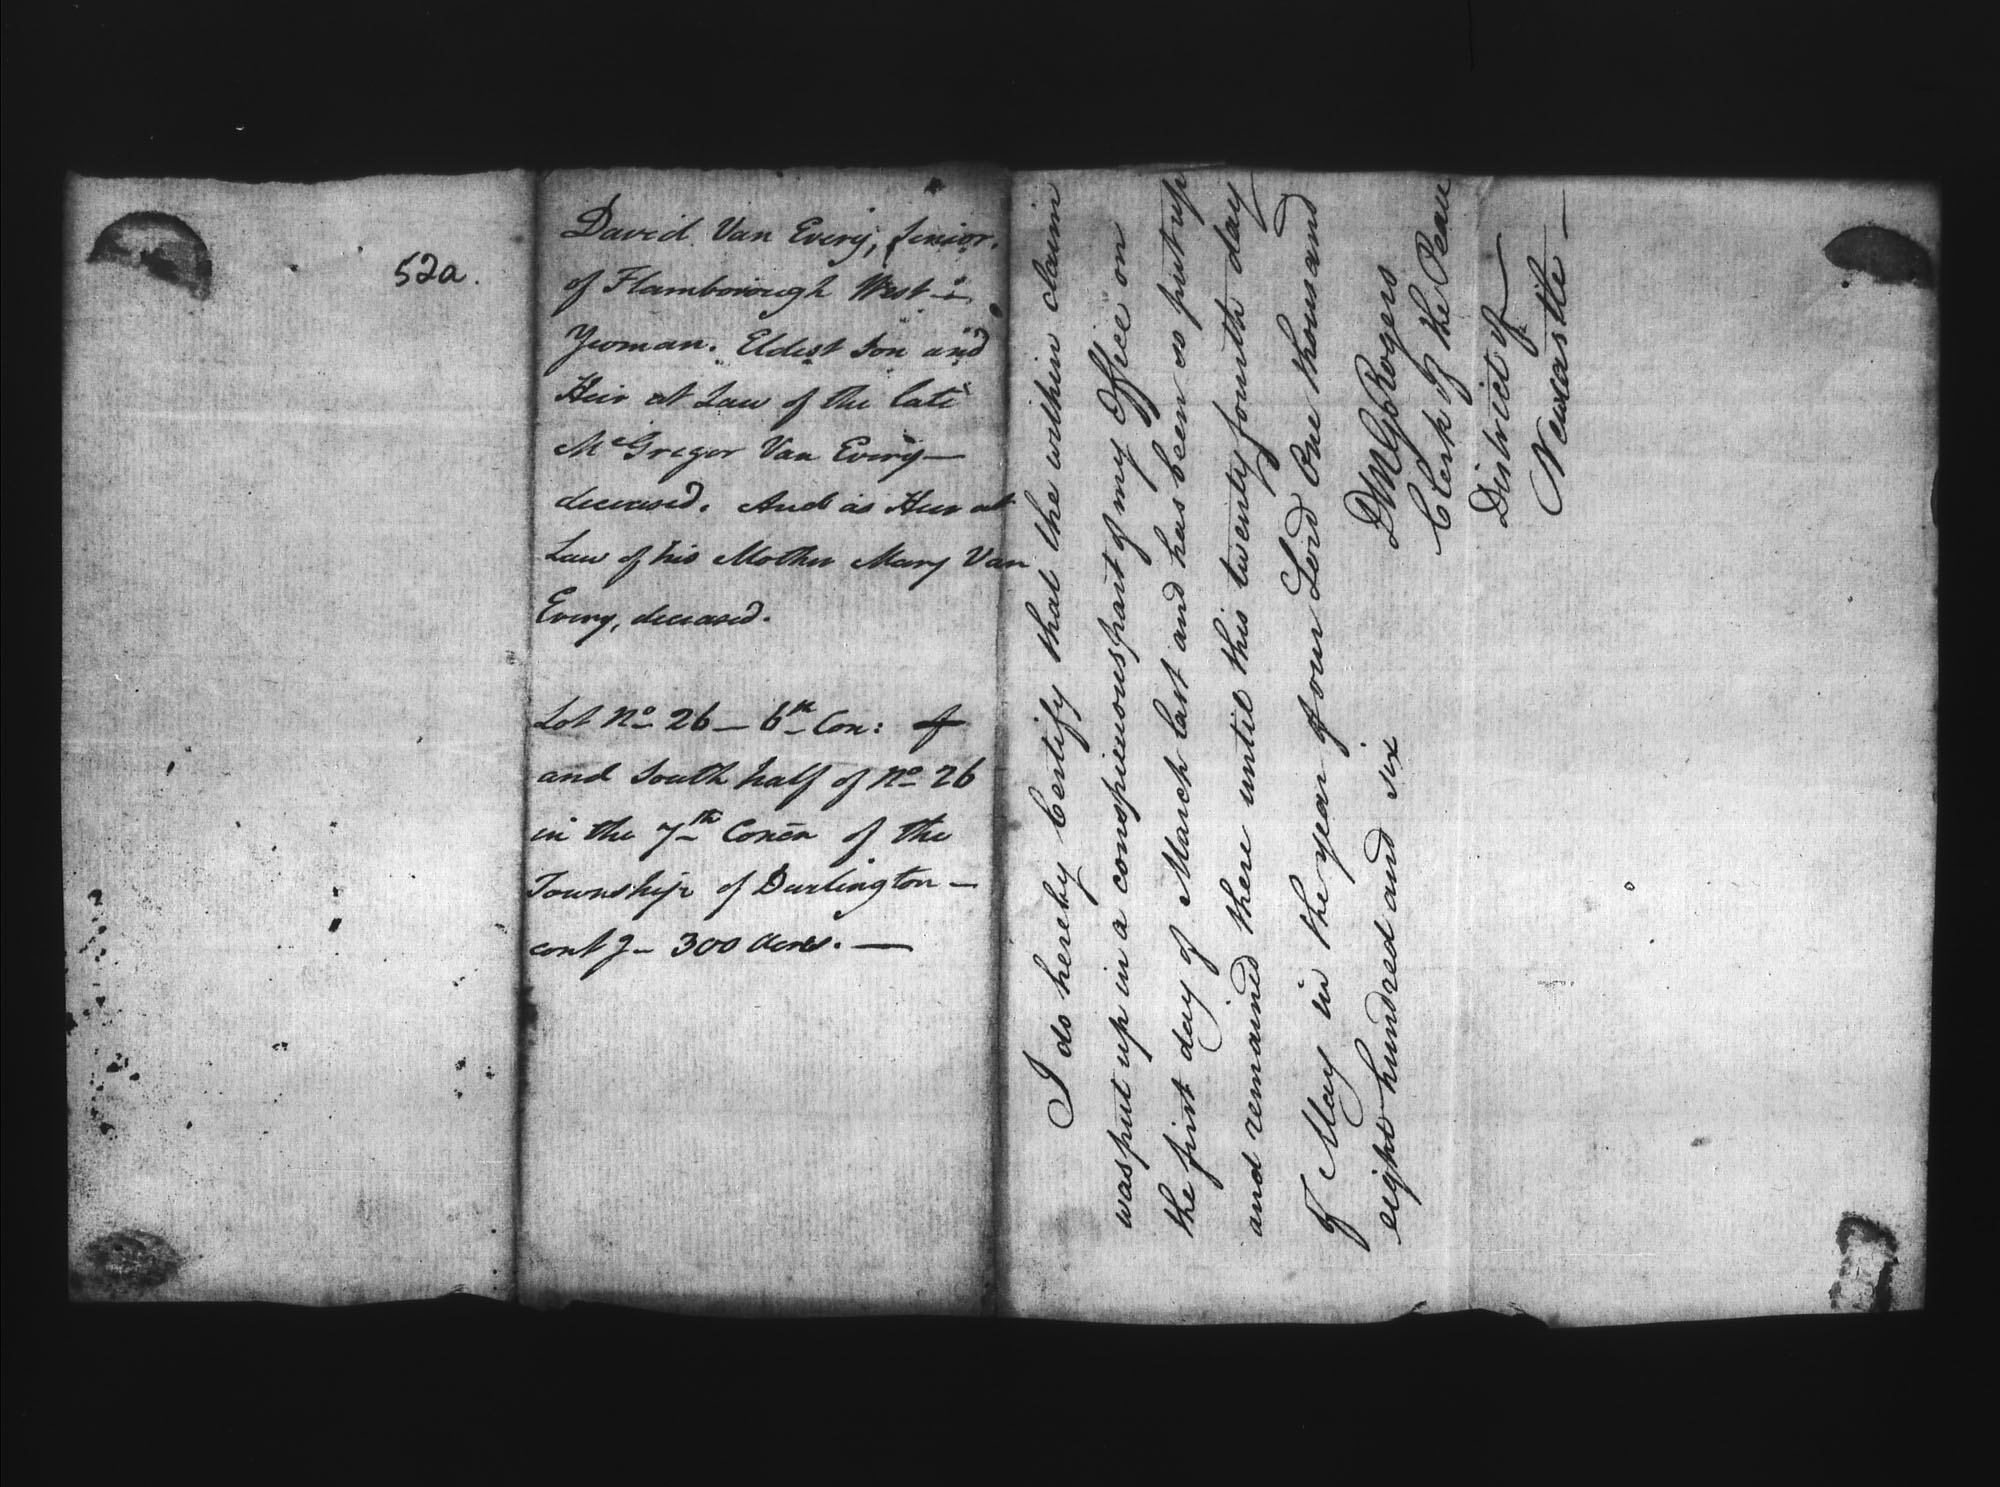 52a.
David Van Every, Junior.
of Flamborough West —
Yeoman. Eldest Son and
Heir at Law of the late
McGregor Van Every —
deceased. And as Heir at
Law of his Mother Mary Van
Every, deceased.
Lot No 26 — 6th Con: of
and South half of No 26
in the 7th Concn of the
Township of Darlington —
contg — 300 Acres. —
I do hereby Certify that the within claim
was put up in a conspicuous part of my Office on
the first day of March last and has been so put up
and remained there until this twenty fourth day
of May in the year of our Lord One thousand
eight hundred and six
DMG Rogers
Clerk of the Peace
District of
Newcastle —